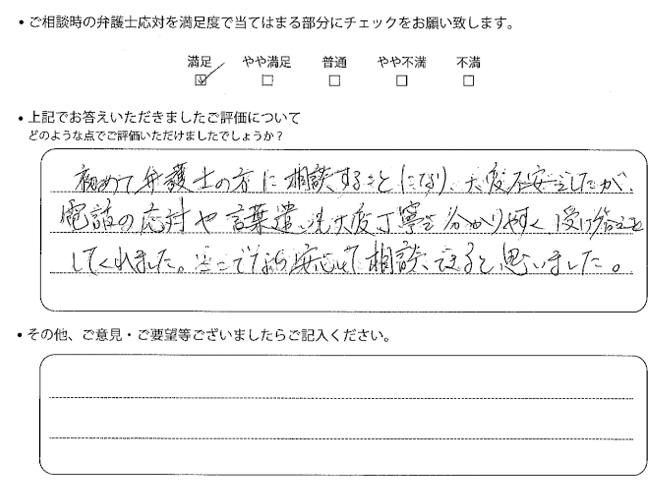 ・ご相談時の弁護士応対を満足度で当てはまる部分にチェックをお願い致します。
満足 やや満足 普通 やや不満 不満
・上記でお答えいただきましたご評価について
どのような点でご評価いただけましたでしょうか?
初めて弁護士の方に相談することになり、大変不安でしたが、
電話の応対や言葉遣いも大変丁寧で分かりやすく受け答えを
してくれました。ここでなら安心して相談できると思いました。
・その他、ご意見・ご要望等ございましたらご記入ください。